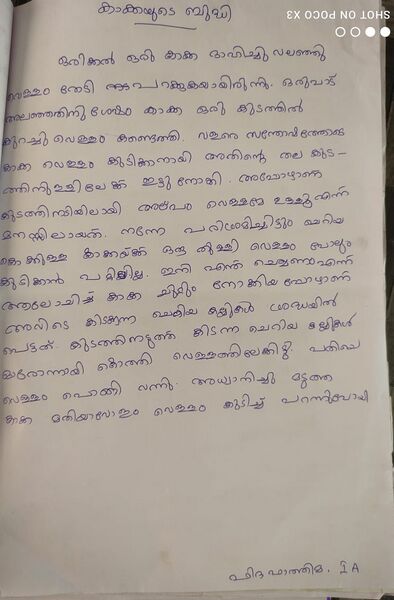 SHOT ON POCO X3
കാക്കയുടെ ബുദ്ധി
ഒരിക്കൽ ഒരു കാക്ക ദാഹിച്ചു വലഞ്ഞു
വെള്ളം തേടി പറക്കുകയായിരുന്നു. ഒരുപാട്
അലഞ്ഞതിനു ശേഷം കാക്ക ഒരു കുടത്തിൽ
കുറച്ചു വെള്ളം കണ്ടെത്തി. വളരെ സന്തോഷത്തോടെ
കാക്ക വെള്ളം കുടിക്കാനായി അതിന്റെ തല കുട-
ത്തിനുള്ളിലേക്ക് ഇട്ടു നോക്കി. അപ്പോഴാണ്
കുടത്തിനടിയിലായി അല്പം വെള്ളമേ ഉള്ളൂഎന്ന്
മനസ്സിലായത്. നന്നേ പരിശ്രമിച്ചിട്ടും ചെറിയ
കൊക്കുള്ള കാക്കയ്ക്ക് ഒരു തുള്ളി വെള്ളം പോലും
കുടിക്കാൻ പറ്റിയില്ല. ഇനി എന്ത് ചെയ്യണംഎന്ന്
ആലോചിച്ച് കാക്ക ചുറ്റും നോക്കിയപ്പോഴാണ്
അവിടെ കിടക്കുന്ന ചെറിയ കല്ലുകൾ ശ്രദ്ധയിൽ
പെട്ടത്. കുടത്തിനടുത്ത് കിടന്ന ചെറിയ കല്ലുകൾ
ഓരോന്നായി കൊത്തി വെള്ളത്തിലേക്കിട്ടു. പതിയെ
വെള്ളം പൊങ്ങി വന്നു. അധ്വാനിച്ചു മടുത്ത
കാക്ക മതിയാവോളം വെള്ളം കുടിച്ച് പറന്നുപോയി
ഫിദ ഫാത്തിമ. 1 A